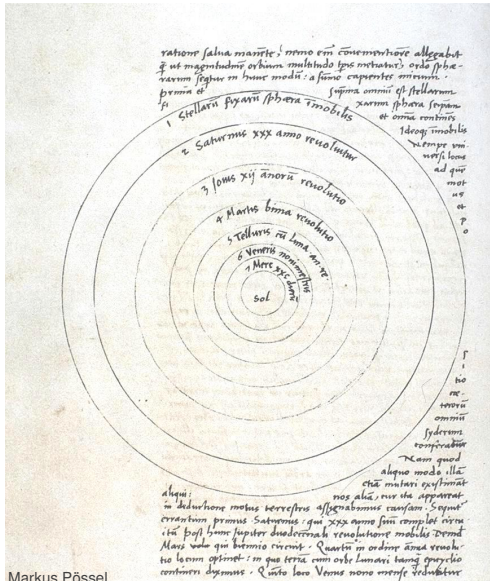 ratione salva manēte, nemo em̄ cōvenientiorē allegabit
q̄ ut magnitudinē orbium multitudo tp̄is metiatur, ordo sphæ-
rarum seqtur in hunc modū: a sūmo capientes initium.
prima et suprema omniū est stellarum
fi xarum sphæra seipsam
et omīa contines
Ideoq; imobilis
Nempe uni
versi locus
ad quē
mot
us
et
p
o
1 Stellarū fixarū sphæra imobilis
2 Saturnus xxx anno revolvitur
3 Jovis xij annorū revolutio
4 Martis bima revolutio
5 Telluris cū Luna an. re.
6 Veneris nonimestris
7 Merc xxc dierū
Sol
s
i
tio
cæ-
terorū
omniū
syderum
conferatur
Nam quod
aliquo modo illā
etiā mutari existimāt
aliqui: nos aliā, cur ita appareat
in deductione motus terrestris assignabimus causam. Sequit̄
errantium primus Saturnus: qui xxx anno suū complet circu
itū post hunc Jupiter duodecenali revolutione mobilis. Demū
Mars qui biennio circuit. Quartū in ordine annua revolu-
tio locum optinet: in quo terrā cum orbe Lunari tanq̄ epicyclo
contineri diximus. Quinto loco Venus nono mense reducitur
Markus Pössel